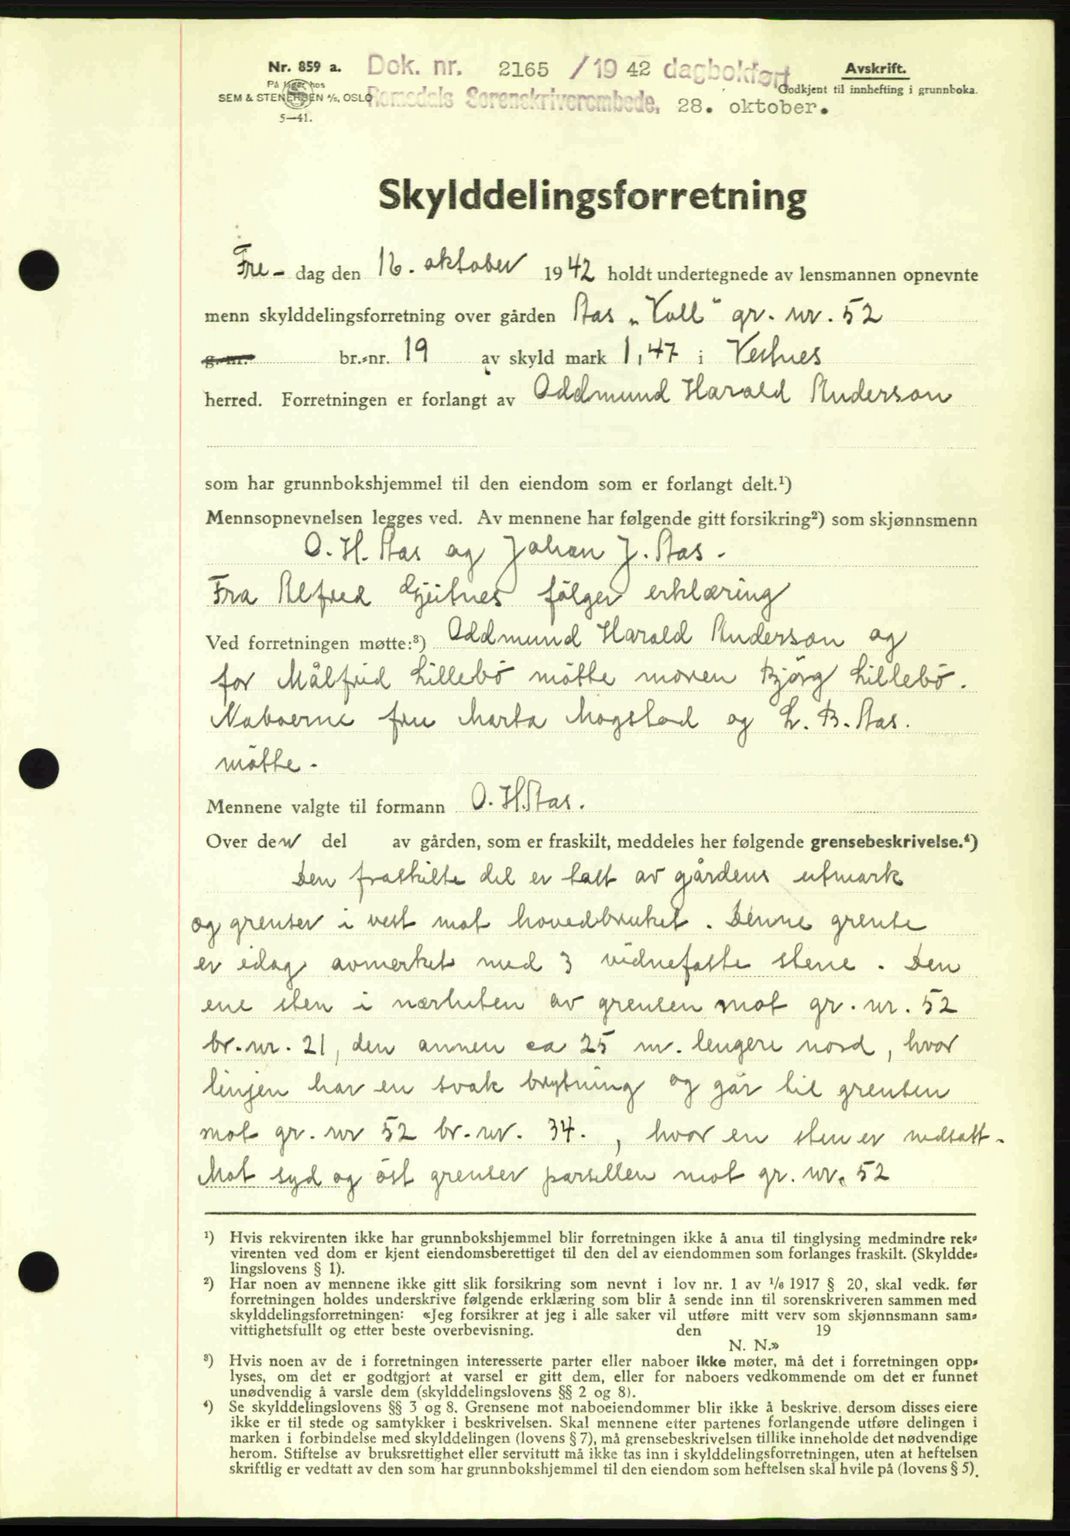 Nr. 859 a.
På lager hos
SEM & STENERSEN A/S, OSLO
5—41.
Dok. nr. 2165 / 19 42 dagbokført
Romsdals Sorenskriverembede, 28. oktober.
Avskrift.
Godkjent til innhefting i grunnboka.
Skylddelingsforretning
Fre- dag den 16. oktober 1942 holdt undertegnede av lensmannen opnevnte
menn skylddelingsforretning over gården Aas „Voll" gr. nr. 52
g.-nr. br.-nr. 19 av skyld mark 1,47 i Vestnes
herred. Forretningen er forlangt av Oddmund Harald Anderson
som har grunnbokshjemmel til den eiendom som er forlangt delt.¹)
Mennsopnevnelsen legges ved. Av mennene har følgende gitt forsikring²) som skjønnsmenn
O. H. Aas og Johan J. Aas.
Fra Alfred Gjeitnes følger erklæring
Ved forretningen møtte:³) Oddmund Harald Anderson og
for Målfrid Lillebö mötte moren Björg Lillebö.
Naboerne fru Marta Mogstad og L. B. Aas.
mötte.
Mennene valgte til formann O. H. Aas.
Over den del av gården, som er fraskilt, meddeles her følgende grensebeskrivelse.⁴)
Den fraskilte del er tatt av gårdens utmark
og grenser i vest mot hovedbruket. Denne grense
er idag avmerket med 3 vidnefaste stene. Den
ene sten i nærheten av grensen mot gr. nr. 52
br. nr. 21, den annen ca 25 m. lengere nord, hvor
linjen har en svak brytning og går til grensen
mot gr. nr 52 br. nr. 34., hvor en sten er nedsatt.
Mot syd og öst grenser parsellen mot gr. nr. 52
¹) Hvis rekvirenten ikke har grunnbokshjemmel blir forretningen ikke å anta til tinglysing medmindre rek-
virenten ved dom er kjent eiendomsberettiget til den del av eiendommen som forlanges fraskilt. (Skyldde-
lingslovens § 1).
²) Har noen av mennene ikke gitt slik forsikring som nevnt i lov nr. 1 av 1/6 1917 § 20, skal vedk. før
forretningen holdes underskrive følgende erklæring som blir å sende inn til sorenskriveren sammen med
skylddelingsforretningen: «Jeg forsikrer at jeg i alle saker vil utføre mitt verv som skjønnsmann sam-
vittighetsfullt og etter beste overbevisning. den 19
N. N.»
³) Hvis noen av de i forretningen interesserte parter eller naboer ikke møter, må det i forretningen opp-
lyses, om det er godtgjort at varsel er gitt dem, eller for naboers vedkommende om det er funnet
unødvendig å varsle dem (skylddelingslovens §§ 2 og 8).
⁴) Se skylddelingslovens §§ 3 og 8. Grensene mot naboeiendommer blir ikke å beskrive, dersom disses eiere
ikke er til stede og samtykker i beskrivelsen. Skal mennene etter partenes forlangende utføre delingen i
marken i forbindelse med skylddelingen (lovens § 7), må grensebeskrivelsen tillike inneholde det nødvendige
herom. Stiftelse av bruksrettighet eller servitutt må ikke tas inn i skylddelingsforretningen, uten at heftelsen
skriftlig er vedtatt av den som har grunnbokshjemmel til den eiendom som heftelsen skal hvile på (lovens § 5).